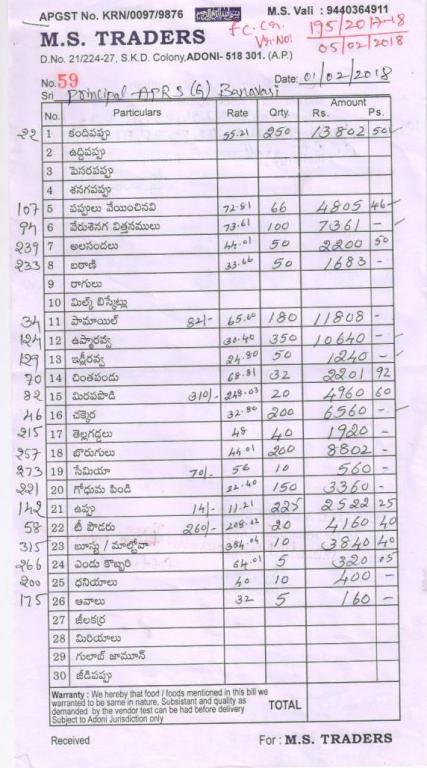 APGST No. KRN/0097/9876 M.S. Vali : 9440364911
M.S. TRADERS
195/2017-18
D.No. 21/224-27, S.K.D. Colony, ADONI- 518 301. (A.P.)
05/02/2018
No. 59 Date: 01/02/2018
Sri Principal APRS (G) Banavasi
No. Particulars Rate Qrty. Amount Rs. Ps.
22 1 కందిపప్పు 55.21 250 13802 50
2 ఉద్దిపప్పు
3 పెసరపప్పు
4 శనగపప్పు
107 5 పప్పులు వేయించినవి 72.81 66 4805 46
94 6 వేరుశెనగ విత్తనములు 73.61 100 7361 -
239 7 అలసందలు 44.01 50 2200 50
233 8 బఠాణి 33.66 50 1683 -
9 రాగులు
10 మిల్క్ బిస్కెట్లు
34 11 పామాయిల్ 82/- 65.60 180 11808 -
124 12 ఉప్మారవ్వ 30.40 350 10640 -
129 13 ఇడ్లీరవ్వ 24.80 50 1240 -
70 14 చింతపండు 68.81 32 2201 92
82 15 మిరపపొడి 310/- 248.03 20 4960 60
46 16 చక్కెర 32.80 200 6560 -
215 17 తెల్లగడ్డలు 48 40 1920 -
257 18 బొరుగులు 44.01 200 8802 -
273 19 సేమియా 70/- 56 10 560 -
221 20 గోధుమ పిండి 22.40 150 3360 -
142 21 ఉప్పు 14/- 11.21 225 2522 25
58 22 టీ పౌడరు 260/- 208.02 20 4160 40
315 23 బూస్టు / మాల్టోవా 384.04 10 3840 40
266 24 ఎండు కొబ్బరి 64.01 5 320 05
200 25 ధనియాలు 40 10 400 -
175 26 ఆవాలు 32 5 160 -
27 జీలకర్ర
28 మిరియాలు
29 గులాబ్ జామూన్
30 జీడిపప్పు
Warranty : We hereby that food / foods mentioned in this bill we
warranted to be same in nature, Subsistant and quality as
demanded by the vendor test can be had before delivery
Subject to Adoni Jurisdiction only
TOTAL
Received For : M.S. TRADERS